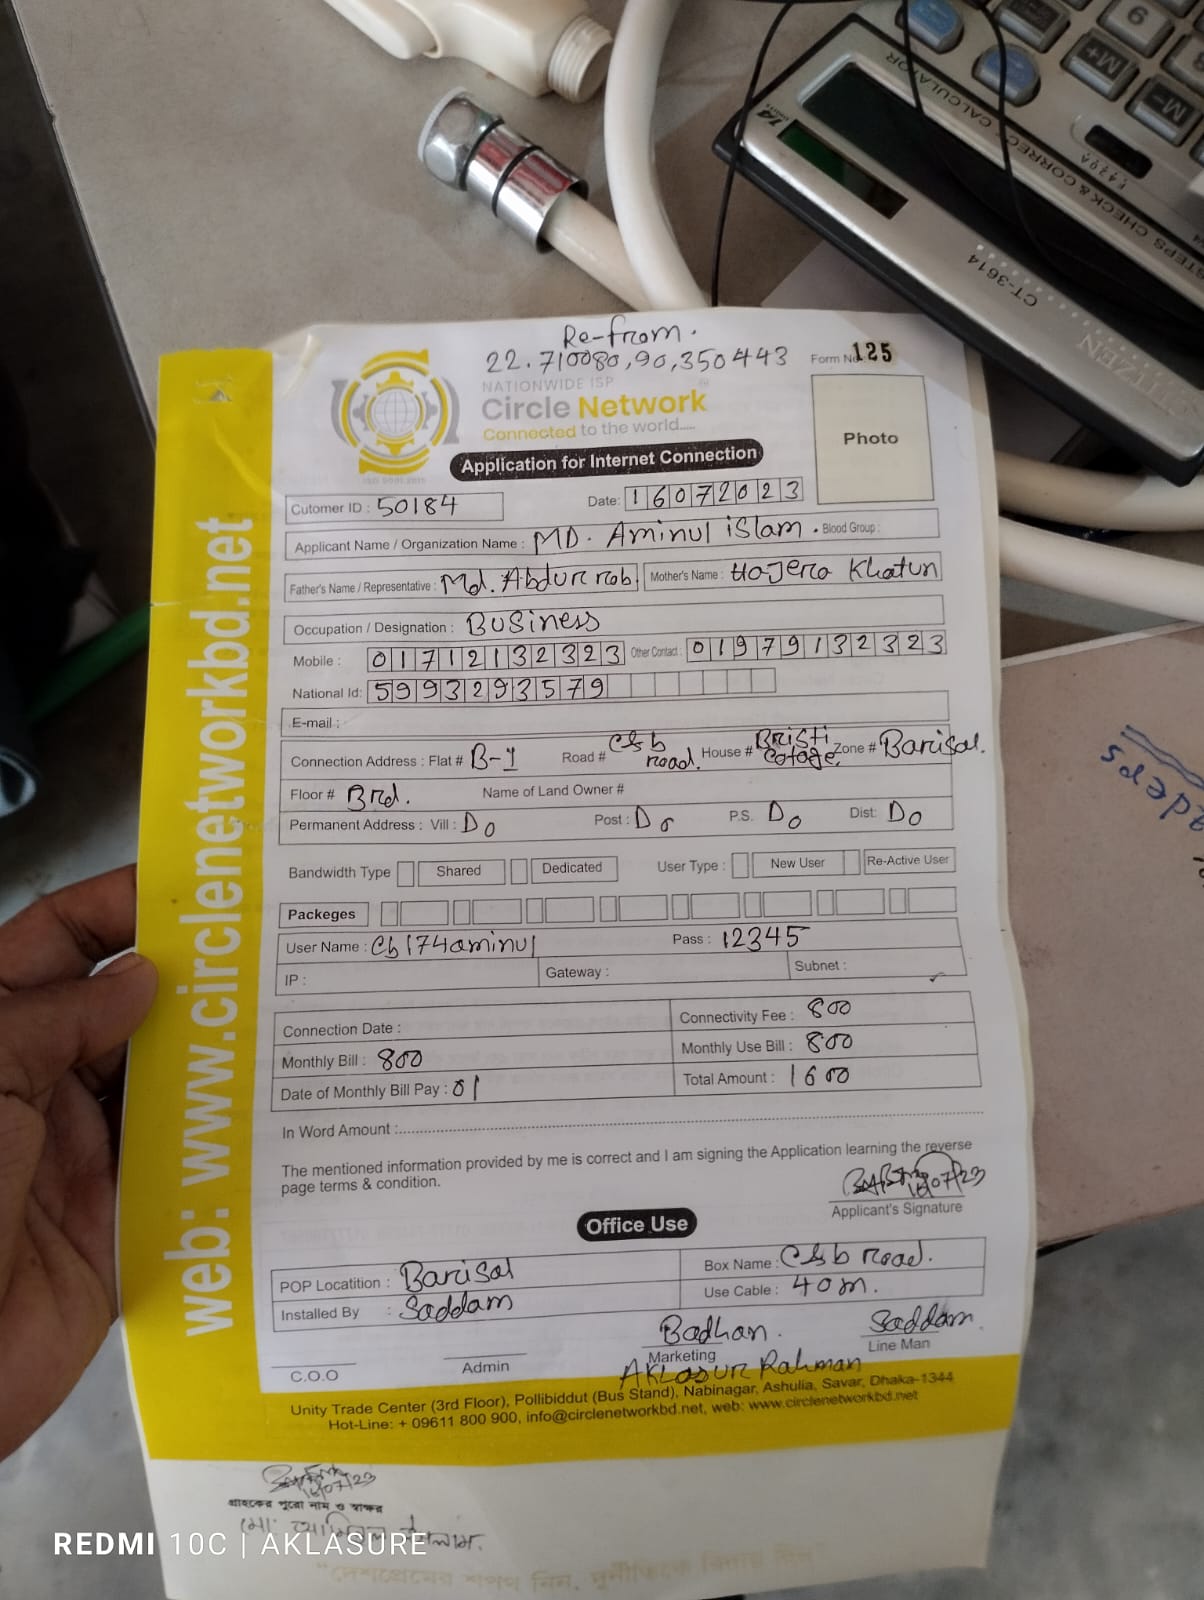 Re-from.
22.710080,90,350443
Form No 125
NATIONWIDE ISP
Circle Network
Connected to the world.....
ISO 9001:2015
Photo
Application for Internet Connection
Cutomer ID : 50184 Date: 16072023
Applicant Name / Organization Name : MD. Aminul islam . Blood Group :
Father's Name / Representative : Md. Abdur rob Mother's Name : Hajera Khatun
Occupation / Designation : Business
Mobile : 01712132323 Other Contact : 01979132323
National Id: 5993293579
E-mail :
Connection Address : Flat # B-1 Road # C&b road. House # Bristi Cotage, Zone # Barisal.
Floor # Brd. Name of Land Owner #
Permanent Address : Vill : Do Post : Do P.S. Do Dist: Do
Bandwidth Type Shared Dedicated User Type : New User Re-Active User
Packeges
User Name : Cb174aminul Pass : 12345
IP : Gateway : Subnet :
Connection Date : Connectivity Fee : 800
Monthly Bill : 800 Monthly Use Bill : 800
Date of Monthly Bill Pay : 01 Total Amount : 1600
In Word Amount :
The mentioned information provided by me is correct and I am signing the Application learning the reverse
page terms & condition.
16/07/23
Applicant's Signature
Office Use
POP Locatition : Barisal Box Name : C&b road.
Installed By : Saddam Use Cable : 40m.
Badhan. Saddam.
C.O.O Admin Marketing Line Man
AKLASUR Rahman
Unity Trade Center (3rd Floor), Pollibiddut (Bus Stand), Nabinagar, Ashulia, Savar, Dhaka-1344
Hot-Line: + 09611 800 900, info@circlenetworkbd.net, web: www.circlenetworkbd.net
16/07/23
গ্রাহকের পুরো নাম ও স্বাক্ষর
মো: আমিনুল ইসলাম.
"দেশপ্রেমের শপথ নিন, দুর্নীতিকে বিদায় দিন"
web: www.circlenetworkbd.net
CITIZEN
CT-3614
STEPS CHECK & CORRECT CALCULATOR
M+
M-
9
F420A
REDMI 10C | AKLASURE